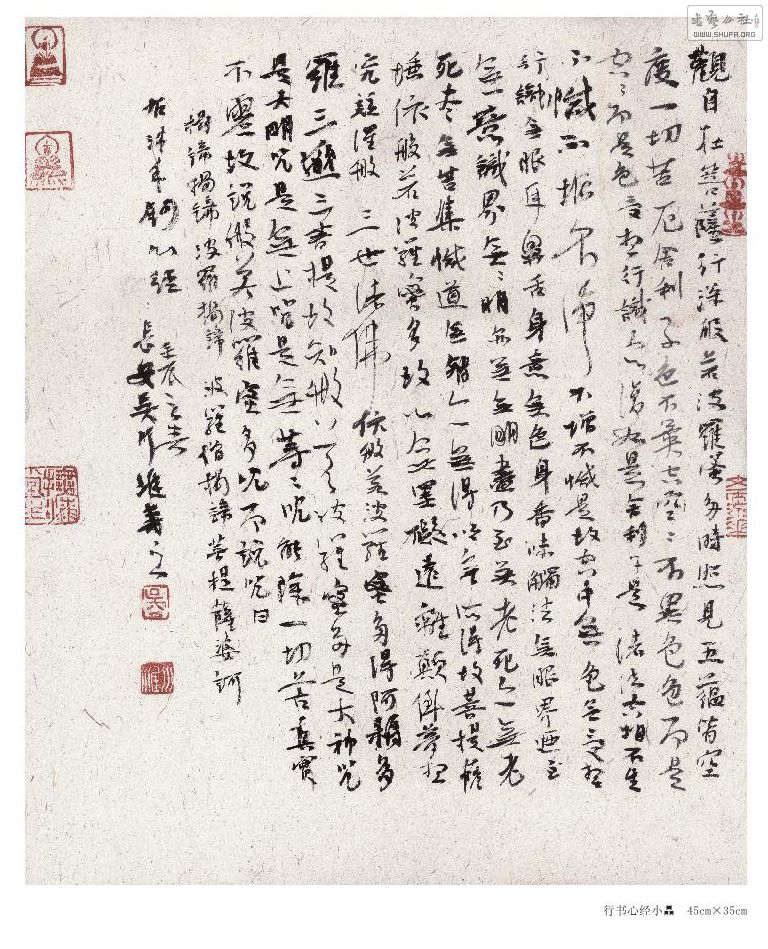 觀自在菩薩行深般若波羅蜜多時照見五蘊皆空
度一切苦厄舍利子色不異空空不異色色而是
空〻而是色受想行識亦復如是舍利子是諸法空相不生
不滅不垢不淨不增不減是故空中無色無受想
行識無眼耳鼻舌身意無色身香味觸法無眼界乃至
無意識界無〻明亦無無明盡乃至無老死亦無老
死盡無苦集滅道無智亦無得以無所得故菩提薩
埵依般若波羅蜜多故心無罣礙遠離顛倒夢想
究竟涅槃三世諸佛依般若波羅蜜多得阿耨多
羅三藐三菩提故知般若波羅蜜多是大神咒
是大明咒是無上咒是無等〻咒能除一切苦真實
不虛故說般若波羅蜜多咒而說咒曰
揭諦揭諦波羅揭諦波羅僧揭諦菩提薩婆訶
心經
壬辰
長安吳川淮
行书心经小品 45cm×35cm
书艺公社
WWW.SHUFA.ORG